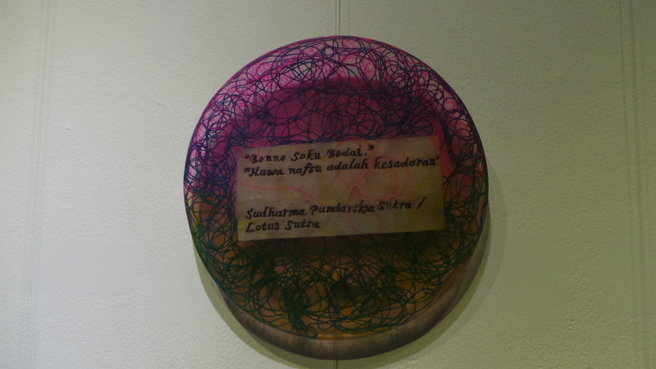 "Bonno Soku Bodai."
"Hawa nafsu adalah kesadaran"
Sudharma Pundarika Sutra /
Lotus Sutra